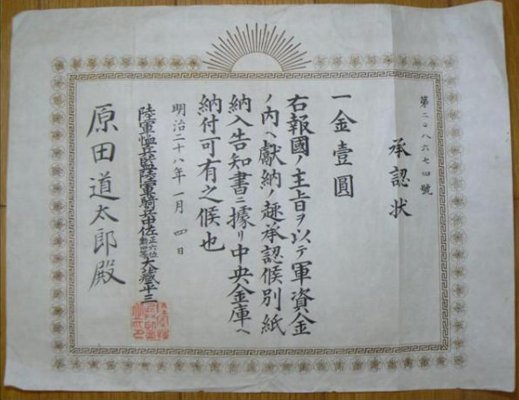 第二〇八六七四號
承認状
一金壹圓
右報國ノ主旨ヲ以テ軍資金
ノ内ヘ獻納ノ趣承認候別紙
納入告知書ニ據リ中央金庫ヘ
納付可有之候也
明治二十八年一月 四日
陸軍恤兵監陸軍騎兵中佐正六位大藏平三
原田道太郎殿